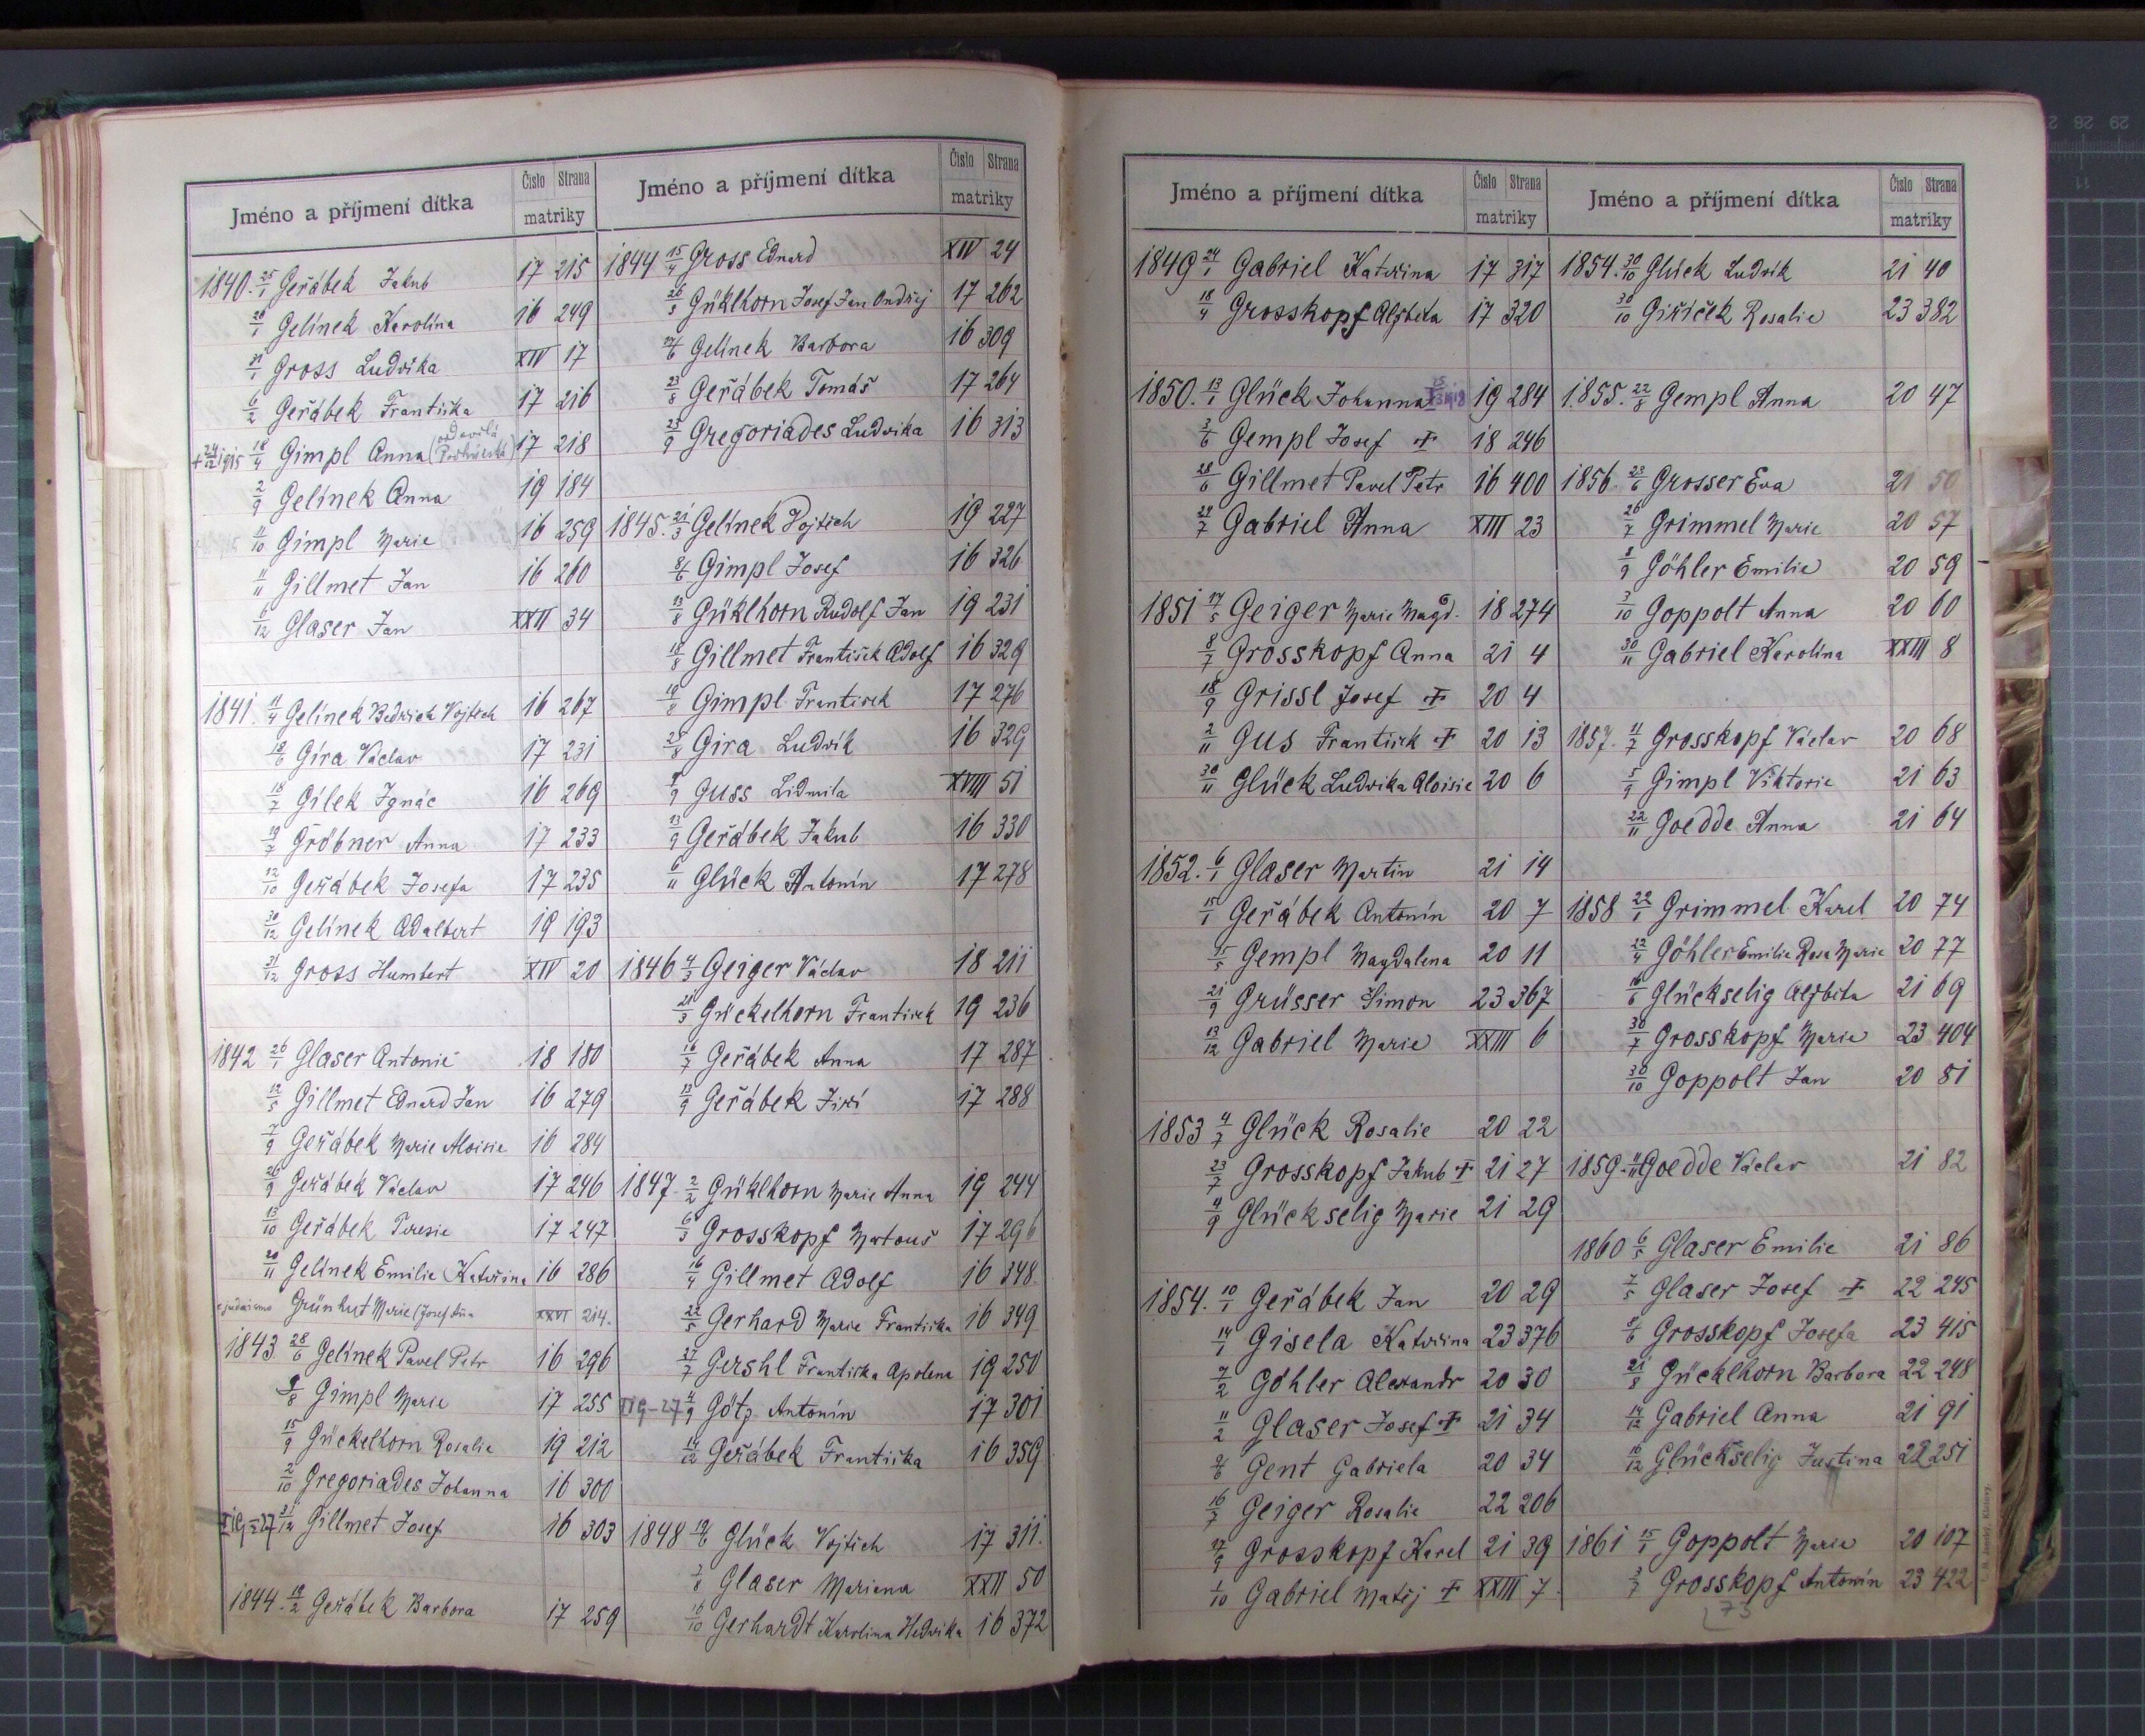 Jméno a příjmení dítka Číslo Strana matriky
1840. 25/1 Geřábek Jakub 17 215
26/1 Gelínek Karolína 16 249
31/1 Gross Ludvika XIV 17
6/2 Geřábek Františka 17 216
18/4 Gimpl Anna 17 218
2/9 Gelínek Anna 19 184
11/10 Gimpl Marie 16 259
11/11 Gillmet Jan 16 260
6/12 Glaser Jan XXII 34
1841. 11/4 Gelínek Bedřich Vojtěch 16 267
18/6 Gira Václav 17 231
18/7 Gilek Ignác 16 269
19/7 Gröbner Anna 17 233
12/10 Geřábek Josefa 17 235
30/12 Gelínek Adalbert 19 193
31/12 Gross Humbert XIV 20
1842 26/1 Glaser Antonie 18 180
12/5 Gillmet Eduard Jan 16 279
7/9 Geřábek Marie Aloisie 16 284
26/9 Geřábek Václav 17 246
13/10 Geřábek Teresie 17 247
20/11 Gelínek Emilie Kateřina 16 286
e judaismo Grünhut Marie (Josef Anna XXVI 214.
1843 28/6 Gelínek Pavel Petr 16 296
9/8 Gimpl Marie 17 255
15/9 Gückelhorn Rosalie 19 212
2/10 Gregoriades Johanna 16 300
31/12 Gillmet Josef 16 303
1844. 19/2 Geřábek Barbora 17 259
Jméno a příjmení dítka Číslo Strana matriky
1844 15/4 Gross Eduard XIV 24
26/5 Güklhorn Josef Jan Ondřej 17 262
24/6 Gelínek Barbora 16 309
23/8 Geřábek Tomáš 17 264
25/9 Gregoriades Ludvika 16 313
1845. 21/3 Gelínek Vojtěch 19 227
8/6 Gimpl Josef 16 326
13/8 Güklhorn Rudolf Jan 19 231
18/8 Gillmet František Adolf 16 329
19/8 Gimpl František 17 276
25/8 Gira Ludvík 16 329
Guss Lidmila XVIII 51
13/9 Geřábek Jakub 16 330
6/11 Glück Antonín 17 278
1846 4/3 Geiger Václav 18 211
21/3 Gückelhorn František 19 236
16/7 Geřábek Anna 17 287
13/9 Geřábek Jiří 17 288
1847. 2/2 Güklhorn Marie Anna 19 244
6/3 Grosskopf Matouš 17 296
16/4 Gillmet Adolf 16 348
22/5 Gerhard Marie Františka 16 349
27/7 Gershl Františka Apolena 19 250
4/9 Götz Antonín 17 301
14/12 Geřábek Františka 16 359
1848 19/6 Glück Vojtěch 17 311.
3/8 Glaser Mariana XXII 50
16/10 Gerhardt Karolina Hedvika 16 372
Jméno a příjmení dítka Číslo Strana matriky
1849 24/1 Gabriel Kateřina 17 317
18/4 Grosskopf Alžběta 17 320
1850. 13/1 Glück Johanna 19 284
3/6 Gempl Josef ✝ 18 246
28/6 Gillmet Pavel Petr 16 400
22/7 Gabriel Anna XIII 23
1851 17/5 Geiger Marie Magd. 18 274
8/7 Grosskopf Anna 21 4
18/9 Grissl Josef ✝ 20 4
2/11 Gus František ✝ 20 13
30/11 Glück Ludvika Aloisie 20 6
1852. 6/1 Glaser Martin 21 14
15/1 Geřábek Antonín 20 7
15/5 Gempl Magdalena 20 11
21/9 Grüsser Šimon 23 367
13/12 Gabriel Marie XXIII 6
1853 4/7 Glück Rosalie 20 22
23/7 Grosskopf Jakub ✝ 21 27
4/9 Glückselig Marie 21 29
1854. 10/1 Geřábek Jan 20 29
14/1 Gisela Kateřina 23 376
7/2 Göhler Alexandr 20 30
11/2 Glaser Josef ✝ 21 34
9/6 Gent Gabriela 20 34
16/7 Geiger Rosalie 22 206
27/9 Grosskopf Karel 21 39
1/10 Gabriel Matěj ✝ XXIII 7.
Jméno a příjmení dítka Číslo Strana matriky
1854. 30/10 Glück Ludvík 21 40
30/10 Giříček Rosalie 23 382
1855. 22/8 Gempl Anna 20 47
1856. 23/6 Grosser Eva 21 50
26/7 Grimmel Marie 20 57
8/9 Göhler Emilie 20 59
3/10 Goppolt Anna 20 60
30/11 Gabriel Karolina XXIII 8
1857. 11/7 Grosskopf Václav 20 68
5/9 Gimpl Viktorie 21 63
22/11 Goedde Anna 21 64
1858 22/1 Grimmel Karel 20 74
22/4 Göhler Emilie Rosa Marie 20 77
16/6 Glückselig Alžběta 21 69
30/7 Grosskopf Marie 23 404
30/10 Goppolt Jan 20 81
1859. 11/11 Goedde Václav 21 82
1860 6/5 Glaser Emilie 21 86
7/5 Glaser Josef ✝ 22 245
8/6 Grosskopf Josefa 23 415
21/8 Gücklhorn Barbora 22 248
14/12 Gabriel Anna 21 91
16/12 Glückselig Justina 22 251
1861 15/1 Goppolt Marie 20 107
3/7 Grosskopf Antonín 23 422
73